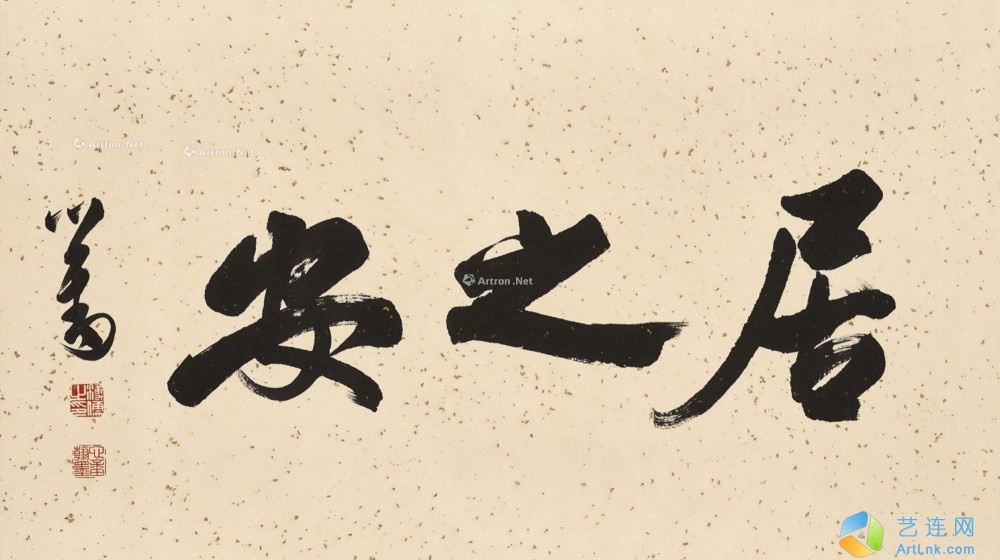 居之安
心畬
溥儒之印
心畬翰墨
Artron.Net
Artron.Net
Artron.Net
艺连网
ArtLnk.com